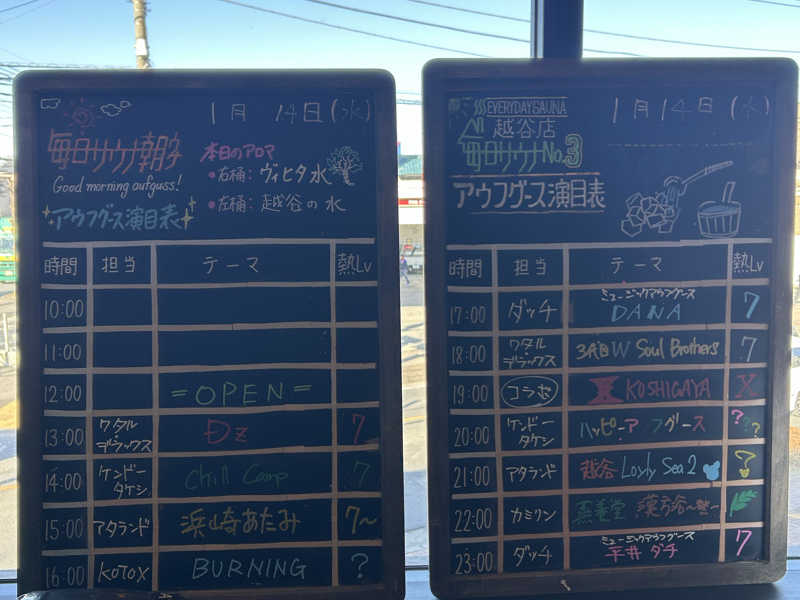 1月 14日(水)
毎日サウナ朝子
Good morning aufguss!
アウフグース演目表
本日のアロマ
• 右桶: ヴィヒタ水
• 左桶: 越谷の水
時間 担当 テーマ 熱Lv
10:00
11:00
12:00 =OPEN=
13:00 ワタル・デラックス Dz 7
14:00 ケンドータケシ Chill Camp 7
15:00 アタランド 浜崎あたみ 7~
16:00 KOTOX BURNING ?
EVERYDAYSAUNA
越谷店
毎日サウナNo.3
1月14日(水)
アウフグース演目表
時間 担当 テーマ 熱Lv
17:00 ダッチ ミュージックアウフグース DANA 7
18:00 ワタル・デラックス 3代目W Soul Brothers 7
19:00 コラボ X KOSHIGAYA X
20:00 ケンドータケシ ハッピーアウフグース ???
21:00 アタランド 越谷 Lovly Sea 2 ?
22:00 カミワン 漢方浴~塾~
23:00 ダッチ ミュージックアウフグース 平井ダチ 7